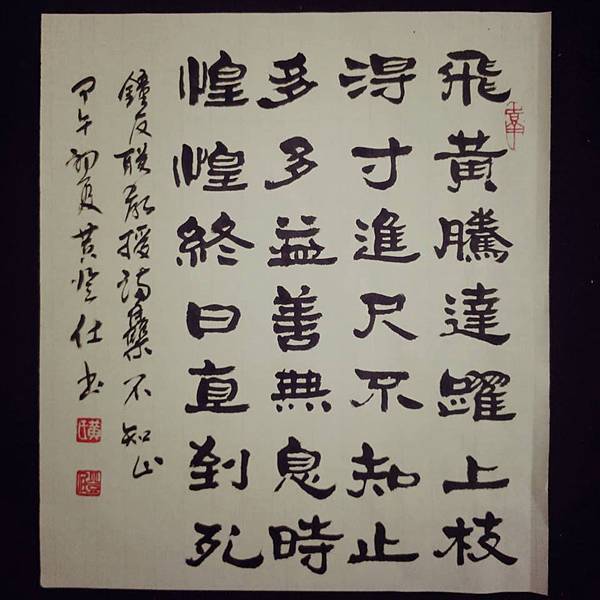 飛黃騰達躍上枝
得寸進尺不知止
多多益善無息時
惶惶終日直到死
鐘友聯教授詩集不知止
甲午初夏黃登仕書